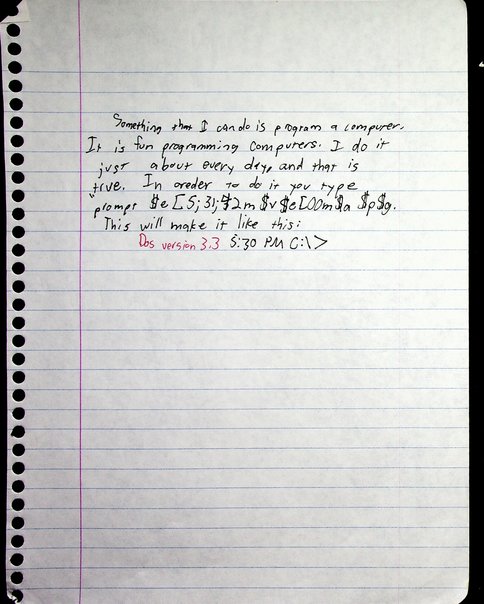 Something that I can do is program a computer.
It is fun programming computers. I do it
just about every day, and that is
true. In oreder to do it you type
"prompt $e[5;31;42m $v$e[00m $a $p$g.
This will make it like this:
Dos version 3.3 5:30 PM C:\>